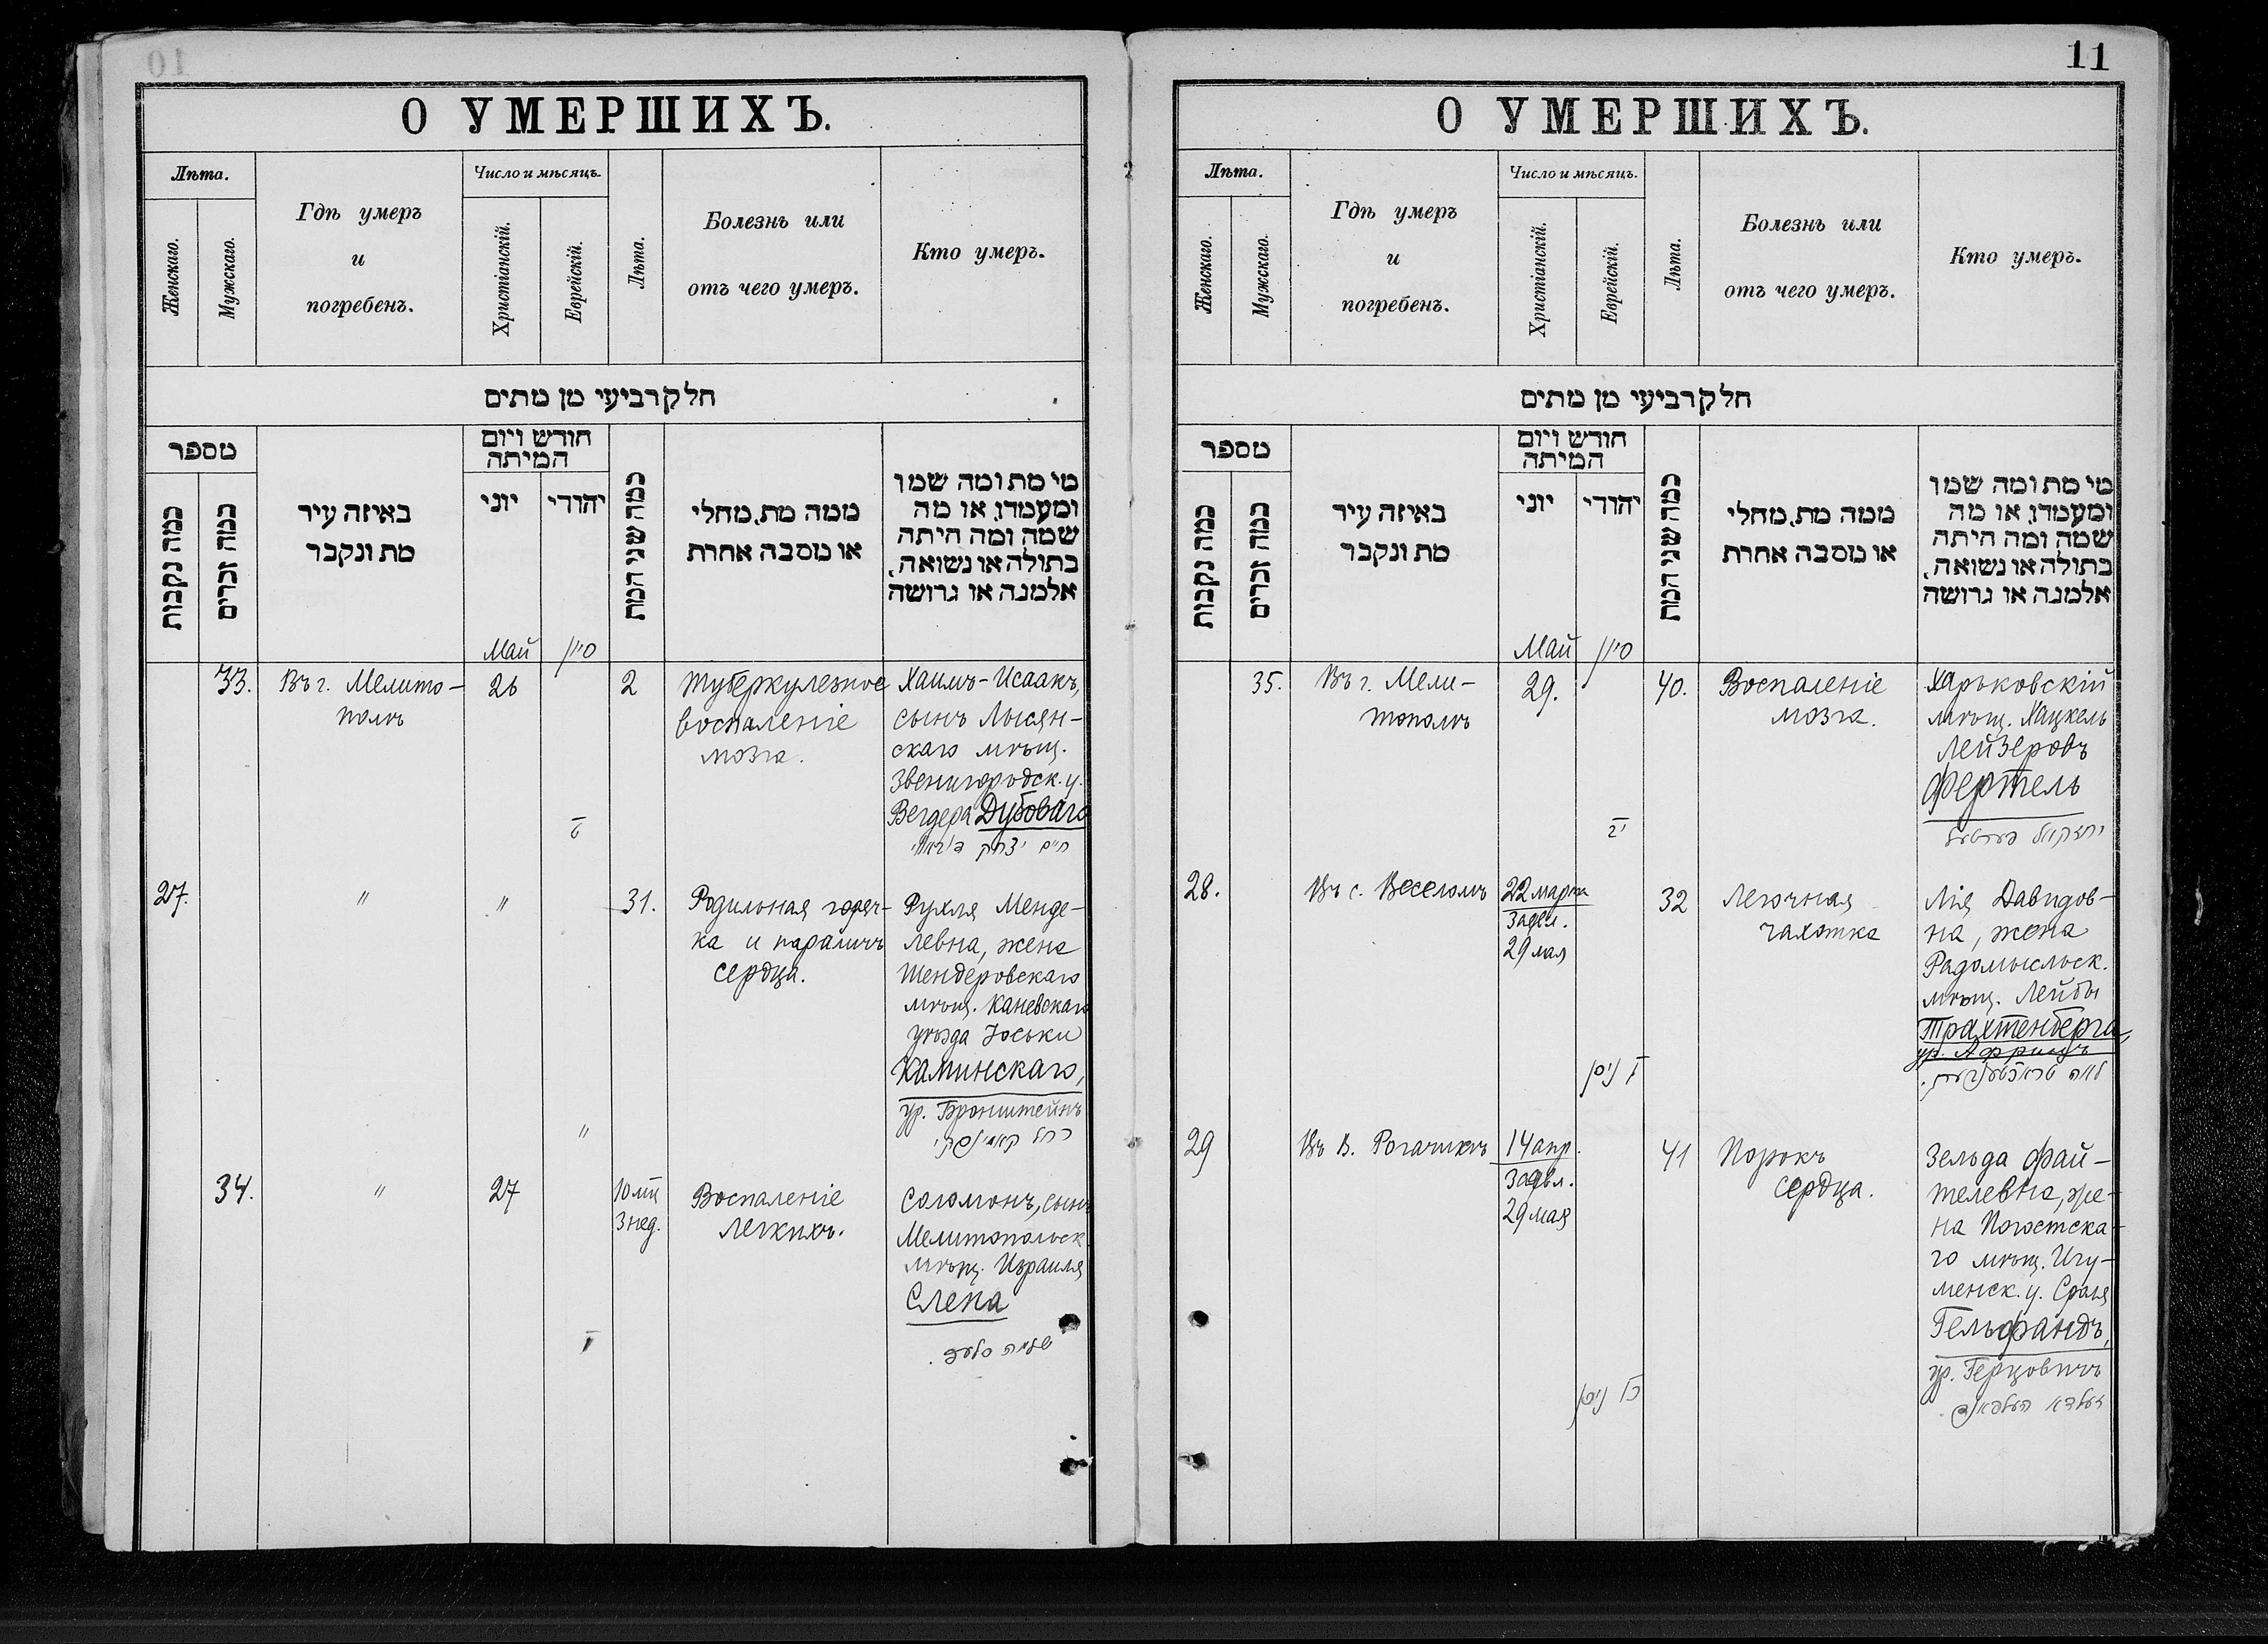 О УМЕРШИХЪ.
Лѣта.
Женскаго.
Мужскаго.
Гдѣ умеръ
и
погребенъ.
Число и мѣсяцъ.
Христіанскій.
Еврейскій.
Лѣта.
Болезнь или
отъ чего умеръ.
Кто умеръ.
חלק רביעי מן מתים
מספר
כמה נקבות
כמה זכרים
באיזה עיר
מת ונקבר
חודש ויום
המיתה
יוני
יהודי
כמה שני המת
ממה מת, מחלי
או מסבה אחרת
מי מת ומה שמו
ומעמדו, או מה
שמה ומה היתה
בתולה או נשואה,
אלמנה או גרושה
Май
סיון
33.
Въ г. Мелито-
полѣ
26
ט
2
Туберкулезное
воспаленіе
мозга.
Хаимъ-Исаакъ,
сынъ Лысян-
скаго мѣщ.
Звенигородск. у.
Дубоваго
חיים יצחק
27.
"
"
"
31.
Родильная гореч-
ка и параличъ
сердца.
Рухля Менде-
левна, жена
Шендеровскаго
мѣщ. Каневскаго
уѣзда Іоськи
Каминскаго,
ур. Бронштейнъ
רחל קאמינסקי
34.
"
27
י
10 м.
3 нед.
Воспаленіе
легкихъ.
Соломонъ, сынъ
Мелитопольск.
мѣщ. Израиля
Слепа
שלמה סלעפ.
11
О УМЕРШИХЪ.
Лѣта.
Женскаго.
Мужскаго.
Гдѣ умеръ
и
погребенъ.
Число и мѣсяцъ.
Христіанскій.
Еврейскій.
Лѣта.
Болезнь или
отъ чего умеръ.
Кто умеръ.
חלק רביעי מן מתים
מספר
כמה נקבות
כמה זכרים
באיזה עיר
מת ונקבר
חודש ויום
המיתה
יוני
יהודי
כמה שני המת
ממה מת, מחלי
או מסבה אחרת
מי מת ומה שמו
ומעמדו, או מה
שמה ומה היתה
בתולה או נשואה,
אלמנה או גרושה
Май
סיון
35.
Въ г. Мели-
тополѣ
29.
יב
40.
Воспаленіе
мозга.
Харьковскій
мѣщ. Хацкель
Лейзеровъ
Фертель
יחזקאל פערטעל
28.
Въ с. Веселомъ
22 марта
Заявл.
29 мая
ניסן
32
Легочная
чахотка
Лія Давидов-
на, жена
Радомысльск.
мѣщ. Лейбы
Трахтенберга,
ур.
לאה טראכטענבערג.
29
Въ В. Рогачикѣ
14 апр.
Заявл.
29 мая
ניסן
41
Порокъ
сердца.
Зельда Фай-
телевна, же-
на Погостска-
го мѣщ. Игу-
менск. у. Сроля
Гельфандъ,
ур. Герцовичъ
זעלדא העלפאנד.